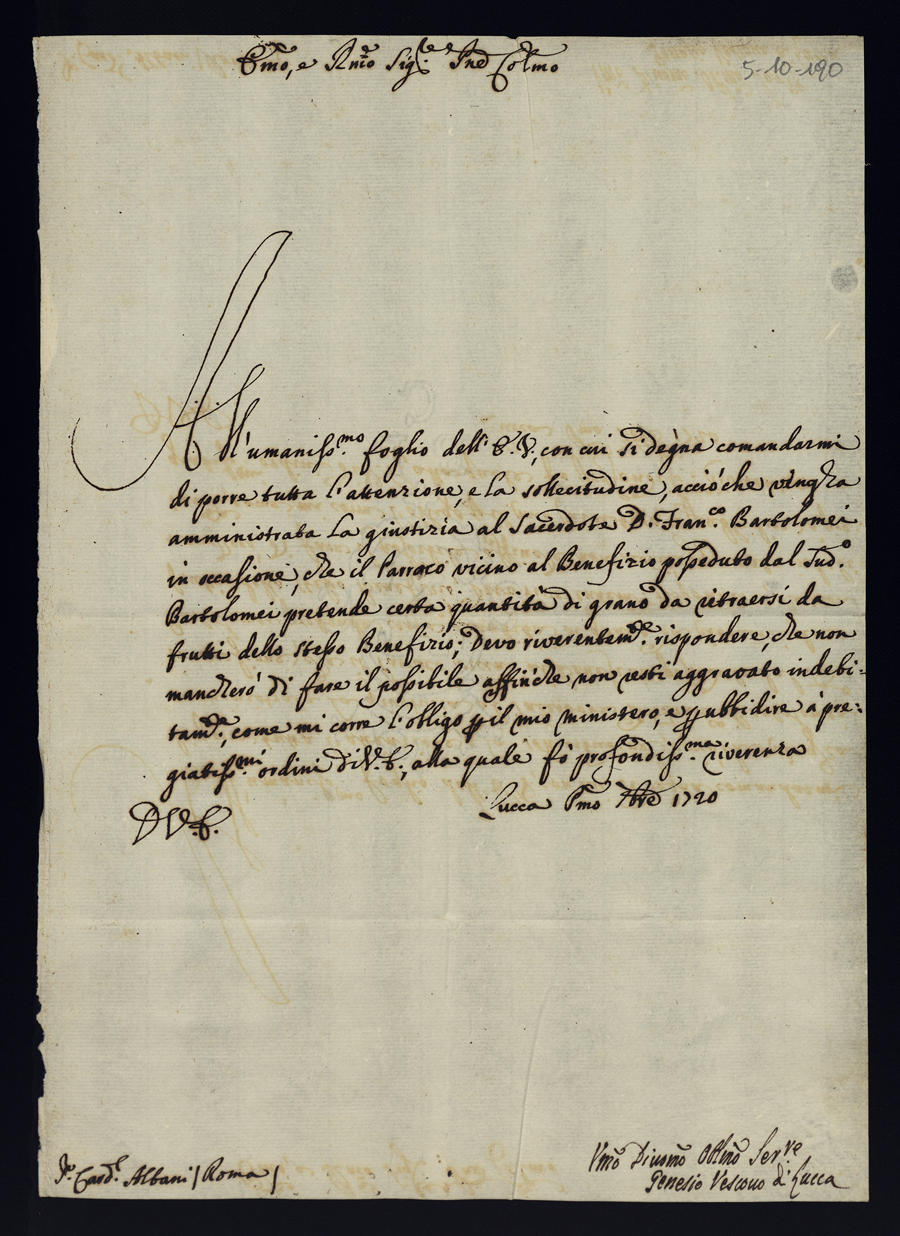 Emo, e Rmo Sigre Pne Colmo
5-10-190
All'umaniss.mo foglio dell'E.V., con cui si degna comandarmi
di porre tutta l'attenzione, e la sollecitudine, acciò che vengha
amministrata la giustizia al Sacerdote D. Fran.co Bartolomei
in occasione, che il Parroco vicino al Benefizio posseduto dal Sud.o
Bartolomei pretende certa quantità di grano da ritraersi da
frutti dello stesso Benefizio; Devo riverentem.te rispondere, che non
mancherò di fare il possibile affinche non resti aggravato indebi=
tam.te, come mi corre l'obligo p il mio ministero, e p ubbidire à pre=
giatiss.mi ordini di V.E., alla quale fò profondiss.ma riverenza
Lucca Pmo 7bre 1720
D V.E.
Sr. Card.l Albani / Roma /
Vmo Divomo Obblmo Serv.re
Genesio Vescouo di Lucca